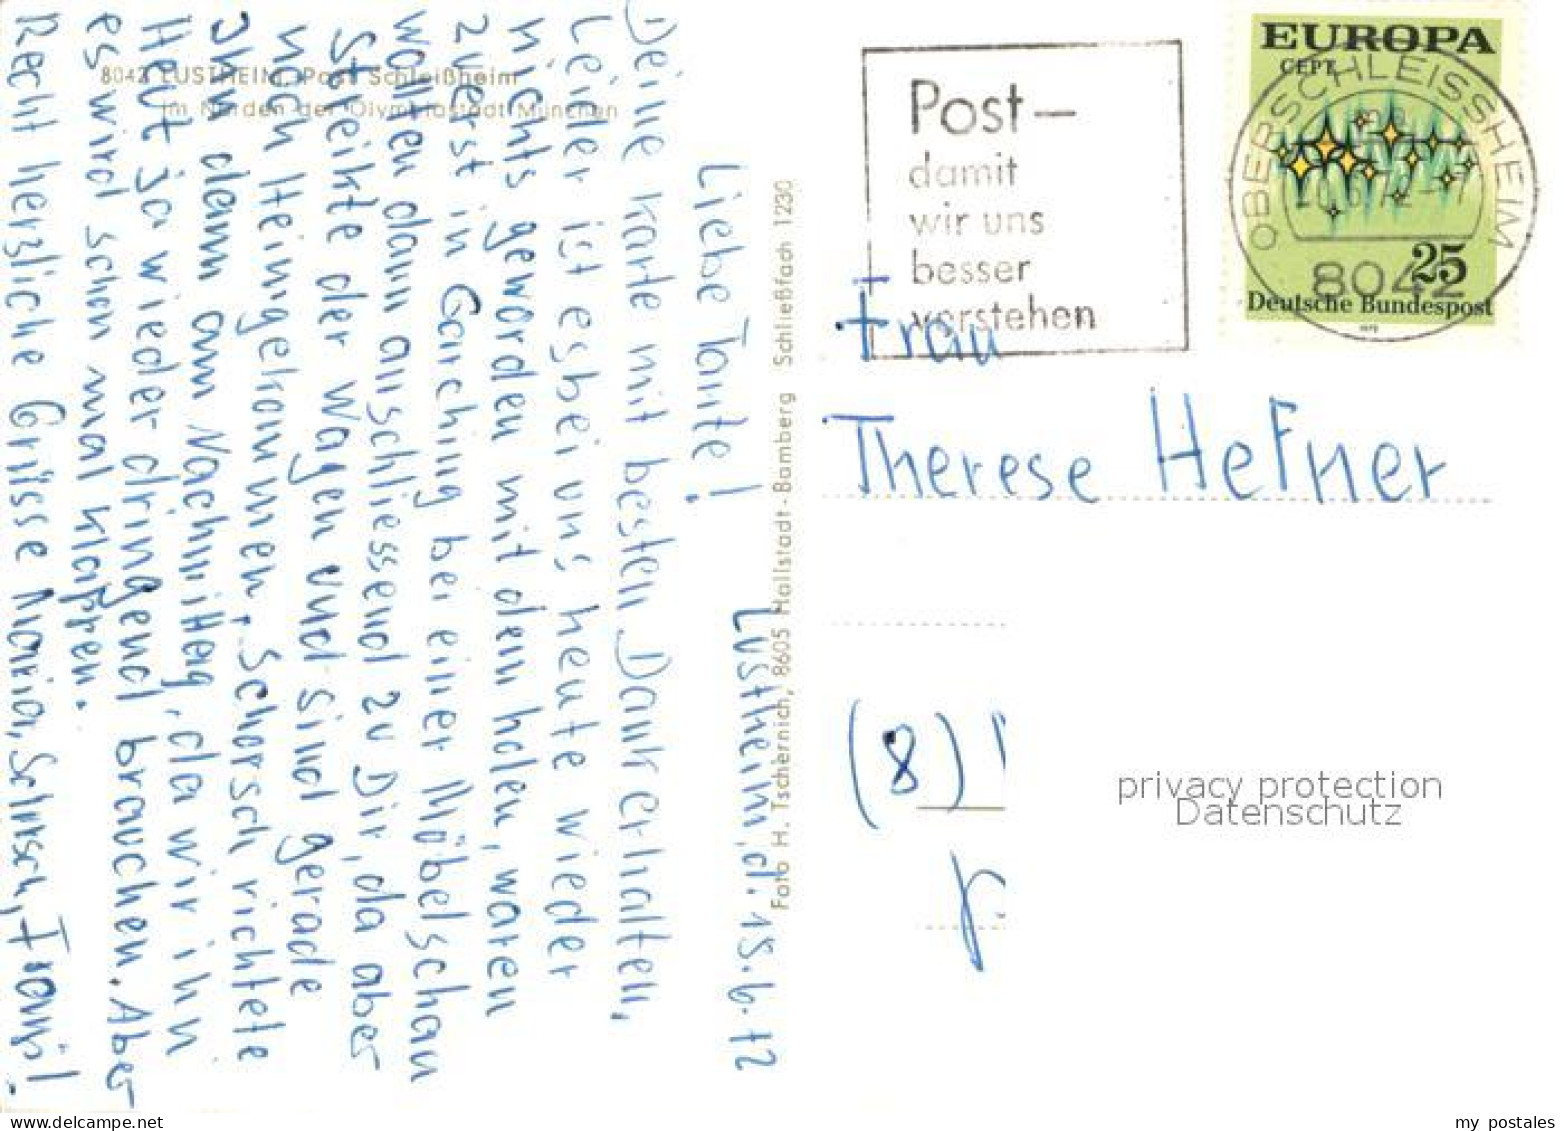 8042 LUSTHEIM, Post Schleißheim
im Norden der Olympiastadt München
Lustheim, d. 18.6.72
Liebe Tante!
Deine Karte mit besten Dank erhalten,
Leider ist es bei uns heute wieder
nichts geworden mit dem holen, waren
zuerst in Garching bei einer Möbelschau
wollten dann anschliessend zu Dir, da aber
Streikte der Wagen und sind gerade
noch Heimgekommen, Schorsch richtete
Ihn dann am Nachmittag, da wir ihn
Heut ja wieder dringend brauchen. Aber
es wird schon mal klappen.
Recht herzliche Grüsse Maria, Schorsch, Franzi!
Foto H. Tschernich, 8605 Hallstadt-Bamberg Schließfach 1230
Post –
damit
wir uns
besser
verstehen
EUROPA
CEPT
25
Deutsche Bundespost
OBERSCHLEISSHEIM
8042
Frau
Therese Hefner
(8)
privacy protection
Datenschutz
www.delcampe.net
my postales